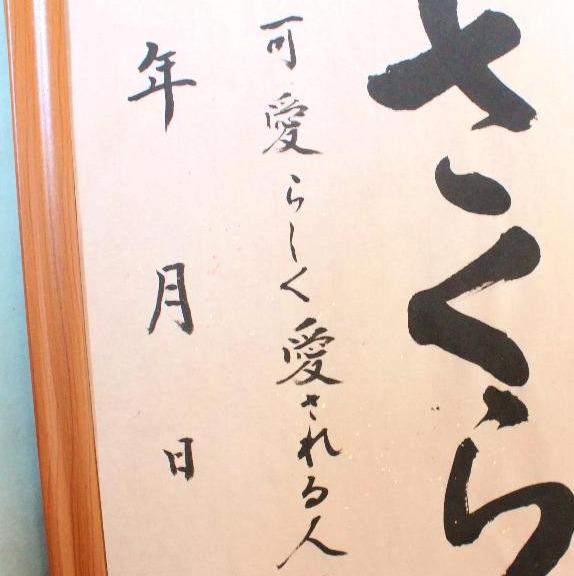 さくら
可愛らしく愛される人
年 月 日